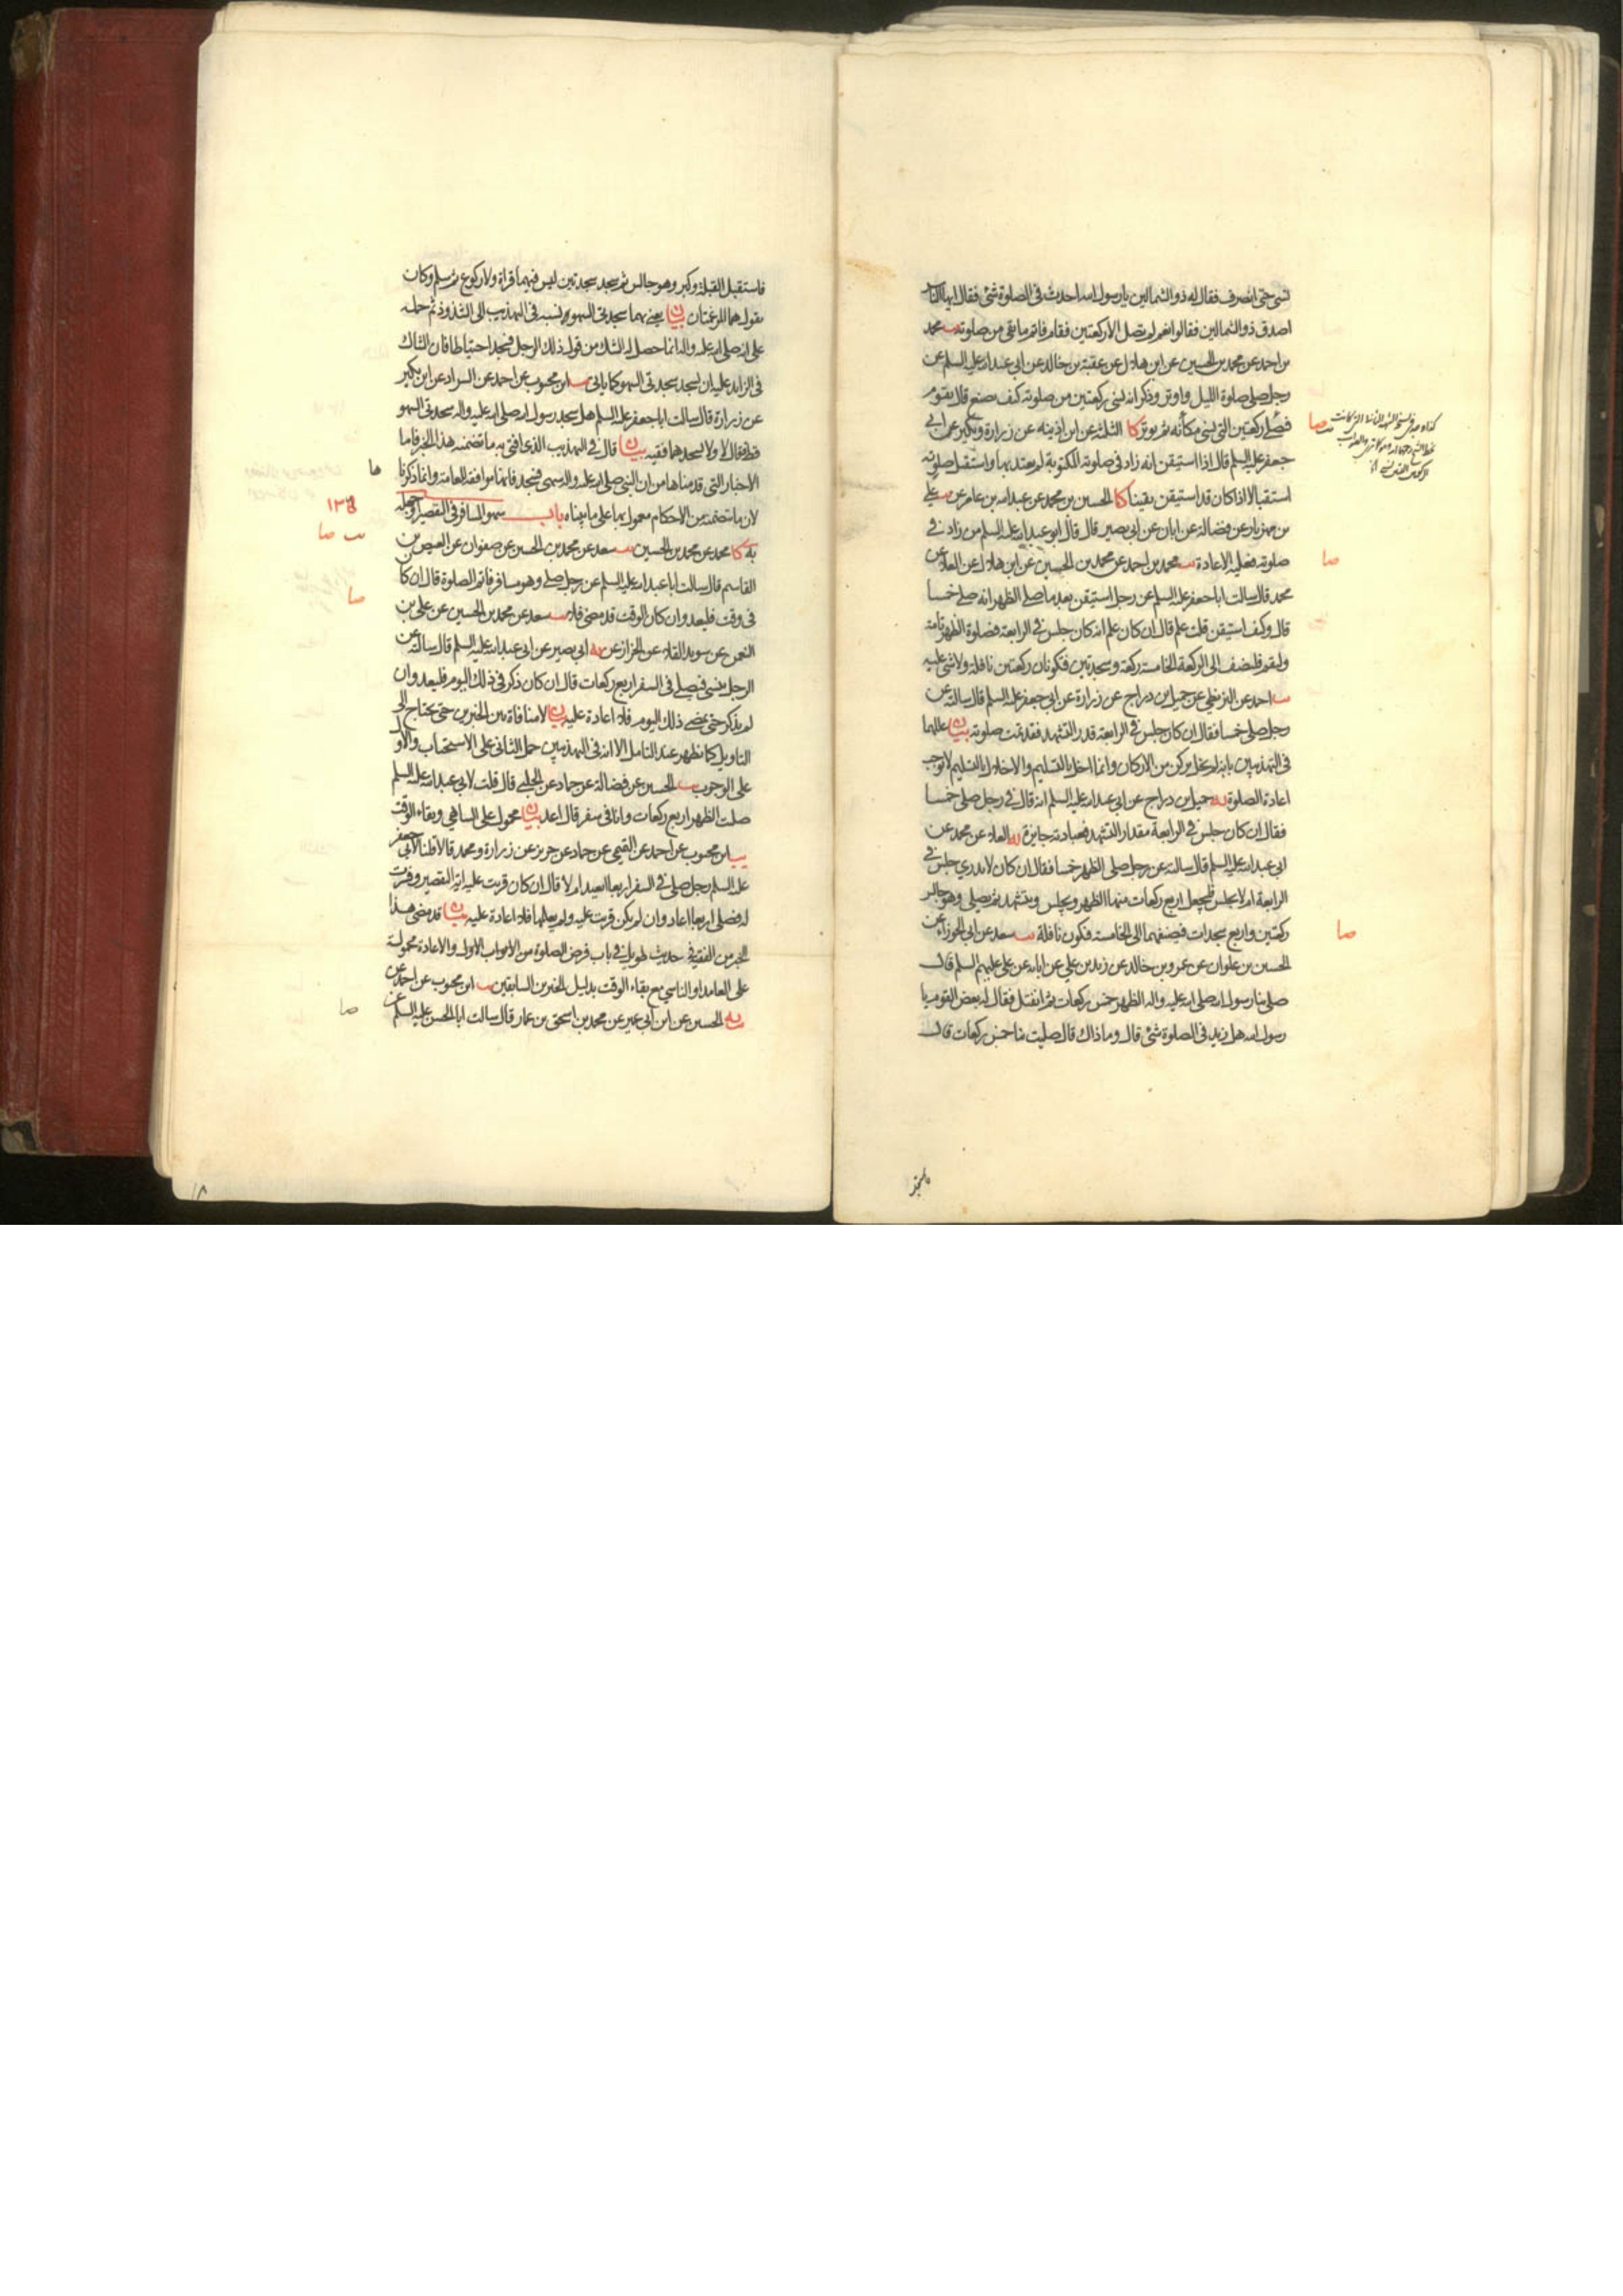 نسى حتى انصرف فقال له ذو الشمالين يا رسول الله احدث فى الصلوة شئ فقال ايها الناس
اصدق ذو الشمالين فقالوا نعم لم تصل الا ركعتين فقام فاتم ما بقى من صلوته يب محمد
بن احمد عن محمد بن الحسين عن ابن هلال عن عقبة بن خالد عن ابى عبد الله عليه السلم عن
رجل صلى صلوة الليل واوتر وذكر انه نسى ركعتين من صلوته كيف يصنع قال يقوم
فيصلى ركعتين التى نسى مكانه ثم يوتر كا الثلثة عن ابن اذينه عن زرارة وبكير عن ابى
جعفر عليه السلم قال اذا استيقن انه زاد فى صلوته المكتوبة لم يعتد بها واستقبل صلوته
استقبالا اذا كان قد استيقن يقينا كا الحسين بن محمد عن عبد الله بن عامر عن يب على
بن مهزيار عن فضالة عن ابان عن ابى بصير قال قال ابو عبد الله عليه السلم من زاد فى
صلوته فعليه الاعادة يب محمد بن احمد عن محمد بن الحسين عن ابن هلال عن العلا عن
محمد قال سالت ابا جعفر عليه السلم عن رجل استيقن بعد ما صلى الظهر انه صلى خمسا
قال وكيف استيقن قلت علم قال ان كان علم انه كان جلس فى الرابعة فصلوة الظهر تامة
وليقم فليضف الى الركعة الخامسة ركعة وسجدتين فتكونان ركعتين نافلة ولا شئ عليه
يب احمد عن البزنطى عن جميل بن دراج عن زرارة عن ابى جعفر عليه السلم قال سالته عن
رجل صلى خمسا فقال ان كان جلس فى الرابعة قدر التشهد فقد تمت صلوته بيان عللهما
فى التهذيبين بانه لم يخل بركن من الاركان وانما اخل بالتسليم والاخلال بالتسليم لا يوجب
اعادة الصلوة يه جميل بن دراج عن ابى عبد الله عليه السلم انه قال فى رجل صلى خمسا
فقال ان كان جلس فى الرابعة مقدار التشهد فعبادته جايزة يه العلا عن محمد عن
ابى عبد الله عليه السلم قال سالته عن رجل صلى الظهر خمسا فقال ان كان لا يدرى جلس فى
الرابعة ام لا يجلس فليجعل اربع ركعات منها الظهر ويجلس ويتشهد ثم يصلى وهو جالس
ركعتين واربع سجدات فيضيفهما الى الخامسة فتكون نافلة يب سعد عن ابى الجوزاء عن
الحسين بن علوان عن عمرو بن خالد عن زيد بن على عن ابائه عن على عليهم السلم قال
صلى بنا رسول الله صلى الله عليه واله الظهر خمس ركعات ثم انفتل فقال له بعض القوم يا
رسول الله هل زيد فى الصلوة شئ قال وما ذاك قال صليت بنا خمس ركعات قال
صا
صا
صا
فاستقبل القبلة وكبر وهو جالس ثم سجد سجدتين ليس فيهما قراة ولا ركوع ثم سلم وكان
يقول هما المرغمتان بيان يعنى بهما سجدتى السهو نسبه فى التهذيب الى الشذوذ ثم حمله
على انه صلى الله عليه واله انما حصل له الشك من قول ذلك الرجل فسجد احتياطا فان الشاك
فى الزايد عليه ان يسجد سجدتى السهو كما ياتى يب ابن محبوب عن احمد عن السراد عن ابن بكير
عن زرارة قال سالت ابا جعفر عليه السلم هل سجد رسول الله صلى الله عليه واله سجدتى السهو
قط فقال لا ولا يسجدهما فقيه بيان قال فى التهذيب الذى افتى به ما تضمنه هذا الخبر فاما
الاخبار التى قدمناها من ان النبى صلى الله عليه واله سهى فسجد فانها موافقة للعامة وانما ذكرنا
لان ما تتضمنه من الاحكام معمول بها على ما بيناه باب سهو المسافر فى التقصير وجهله
به كا محمد عن محمد بن الحسين يب سعد عن محمد بن الحسين عن صفوان عن العيص بن
القاسم قال سالت ابا عبد الله عليه السلم عن رجل صلى وهو مسافر فاتم الصلوة قال ان كا
فى وقت فليعد وان كان الوقت قد مضى فلا يب سعد عن محمد بن الحسين عن على بن
النعمن عن سويد القلا عن الخزاز عن يه ابى بصير عن ابى عبد الله عليه السلم قال سالته عن
الرجل ينسى فيصلى فى السفر اربع ركعات قال ان كان ذكر فى ذلك اليوم فليعد وان
لم يذكر حتى يمضى ذلك اليوم فلا اعادة عليه بيان لا منافاة بين الخبرين حتى يحتاج الى
التاويل كما يظهر عند التامل الا انه فى التهذيبين حمل الثانى على الاستحباب والاول
على الوجوب يب الحسين عن فضالة عن حماد عن الحلبى قال قلت لابى عبد الله عليه السلم
صليت الظهر اربع ركعات وانا فى سفر قال اعد بيان محمول على الساهى وبقاء الوقت
يب ابن محبوب عن احمد عن التميمى عن حماد عن حريز عن زرارة ومحمد قالا قلنا لابى جعفر
عليه السلم رجل صلى فى السفر اربعا ايعيد ام لا قال ان كان قريت عليه اية التقصير وفسرت
له فصلى اربعا اعاد وان لم يكن قريت عليه ولم يعلمها فلا اعادة عليه بيان قد مضى هذا
الخبر من الفقيه فى حديث طويل فى باب فرض الصلوة من الابواب الاول والاعادة محمولة
على العامد او الناسى مع بقاء الوقت بدليل الخبرين السابقين يب ابن محبوب عن احمد عن
يه الحسين عن ابن ابى عمير عن محمد بن اسحق بن عمار قال سالت ابا الحسن عليه السلم عن
ها
يب صا
صا
صا